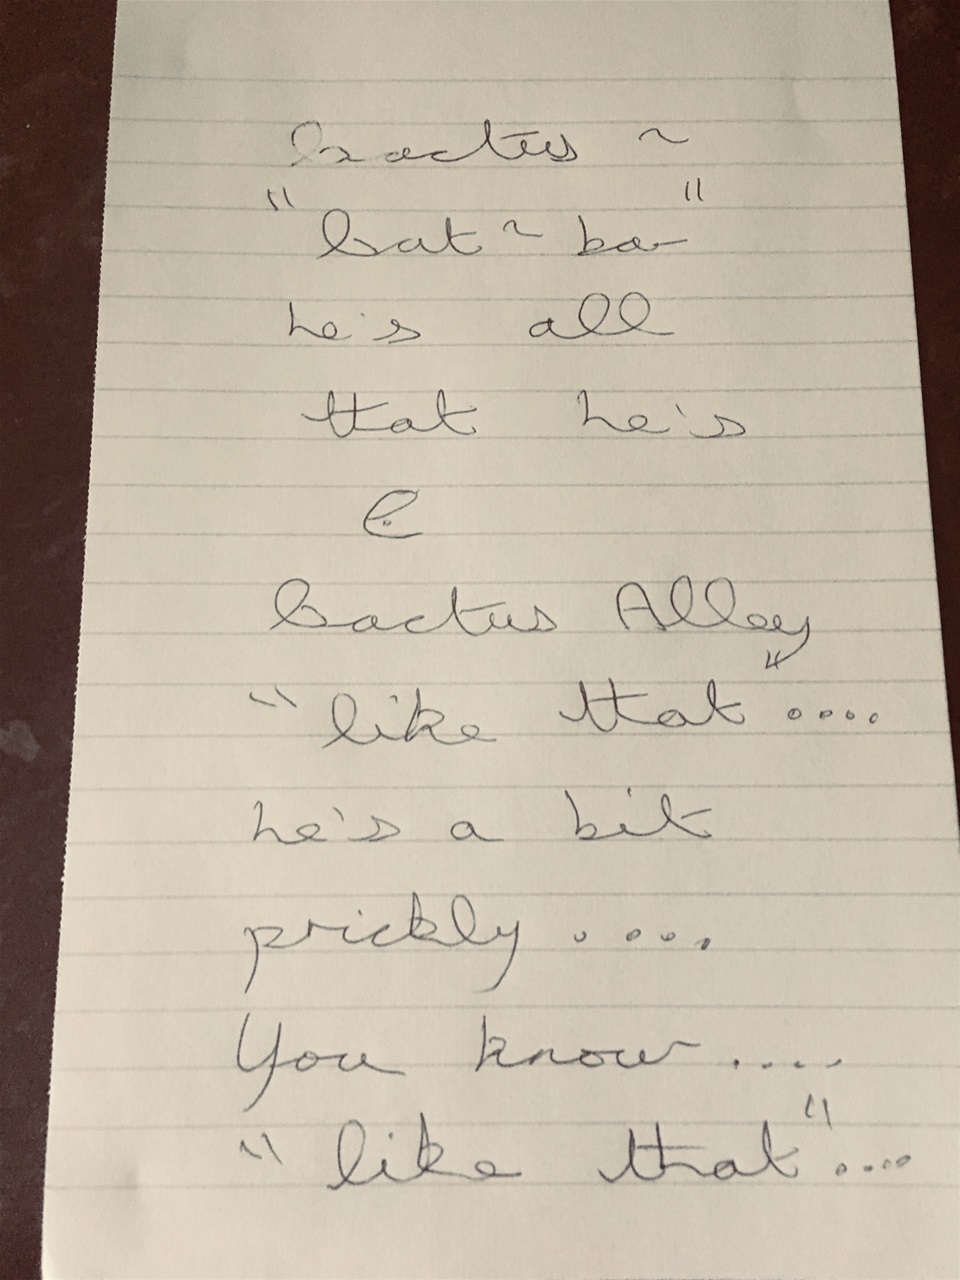 Cactus ~
"Cat ~ ba"
he's all
that he's
C.
Cactus Alley
"like that"....
he's a bit
prickly ....
You know ....
"like that"....